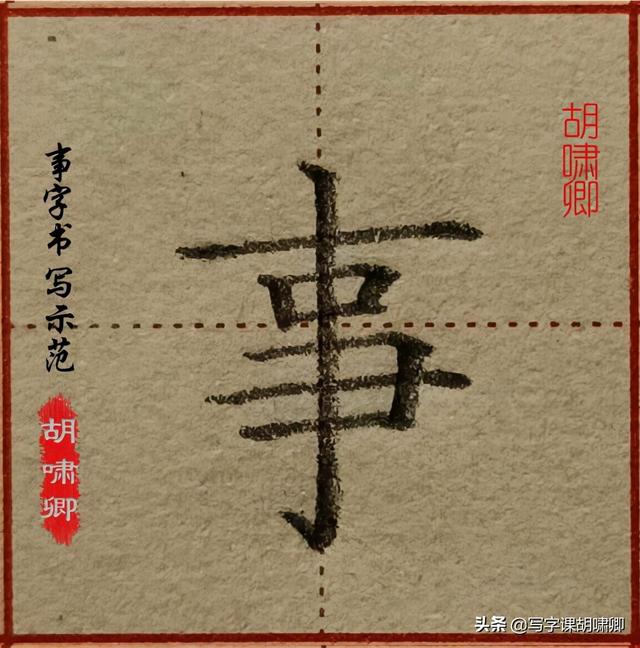 事
事字书写示范
胡啸卿
胡啸卿
头条 @写字课胡啸卿